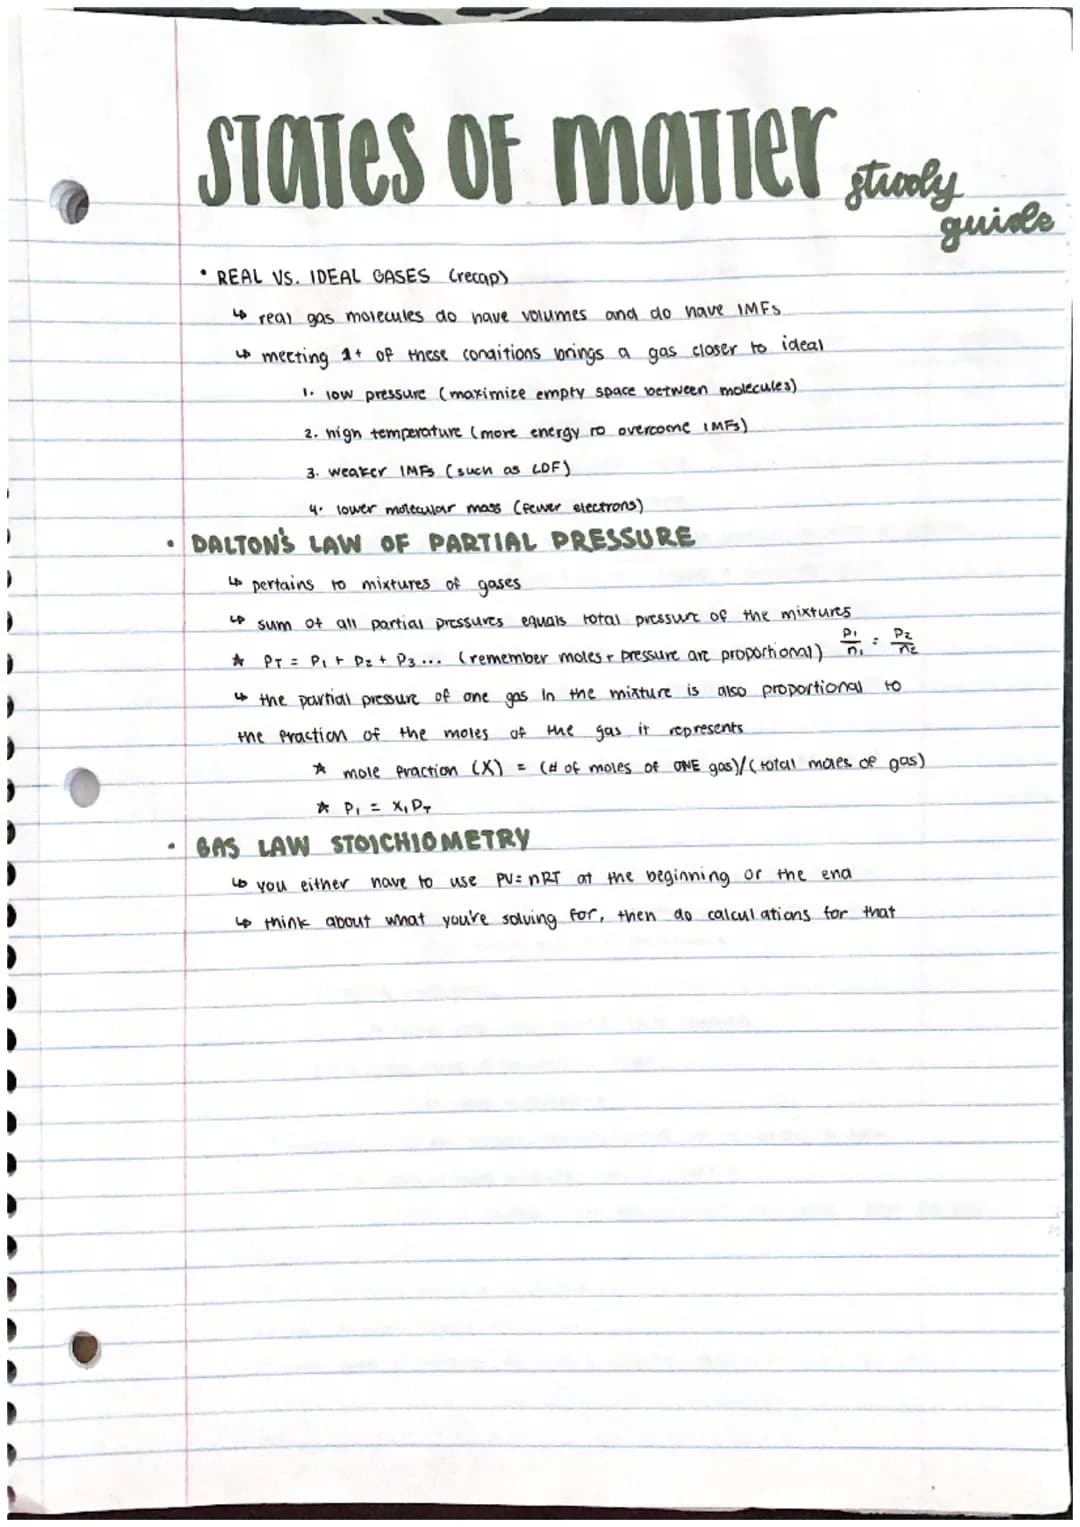 STATES OF MATTER study guide
• REAL VS. IDEAL GASES (recap)
↳ real gas molecules do have volumes and do have IMFs
↳ meeting 1+ of these conditions brings a gas closer to ideal
1. low pressure (maximize empty space between molecules)
2. high temperature (more energy to overcome IMFs)
3. weaker IMFs (such as LDF)
4. lower molecular mass (fewer electrons)
• DALTON'S LAW OF PARTIAL PRESSURE
↳ pertains to mixtures of gases
↳ sum of all partial pressures equals total pressure of the mixtures
☆ PT = P₁ + P₂ + P₃... (remember moles + pressure are proportional) P₁/n₁ = P₂/n₂
↳ the partial pressure of one gas in the mixture is also proportional to
the fraction of the moles of the gas it represents
☆ mole fraction (X) = (# of moles of ONE gas)/(total moles of gas)
☆ P₁ = X₁PT
• GAS LAW STOICHIOMETRY
↳ you either have to use PV=nRT at the beginning or the end
↳ think about what you're solving for, then do calculations for that